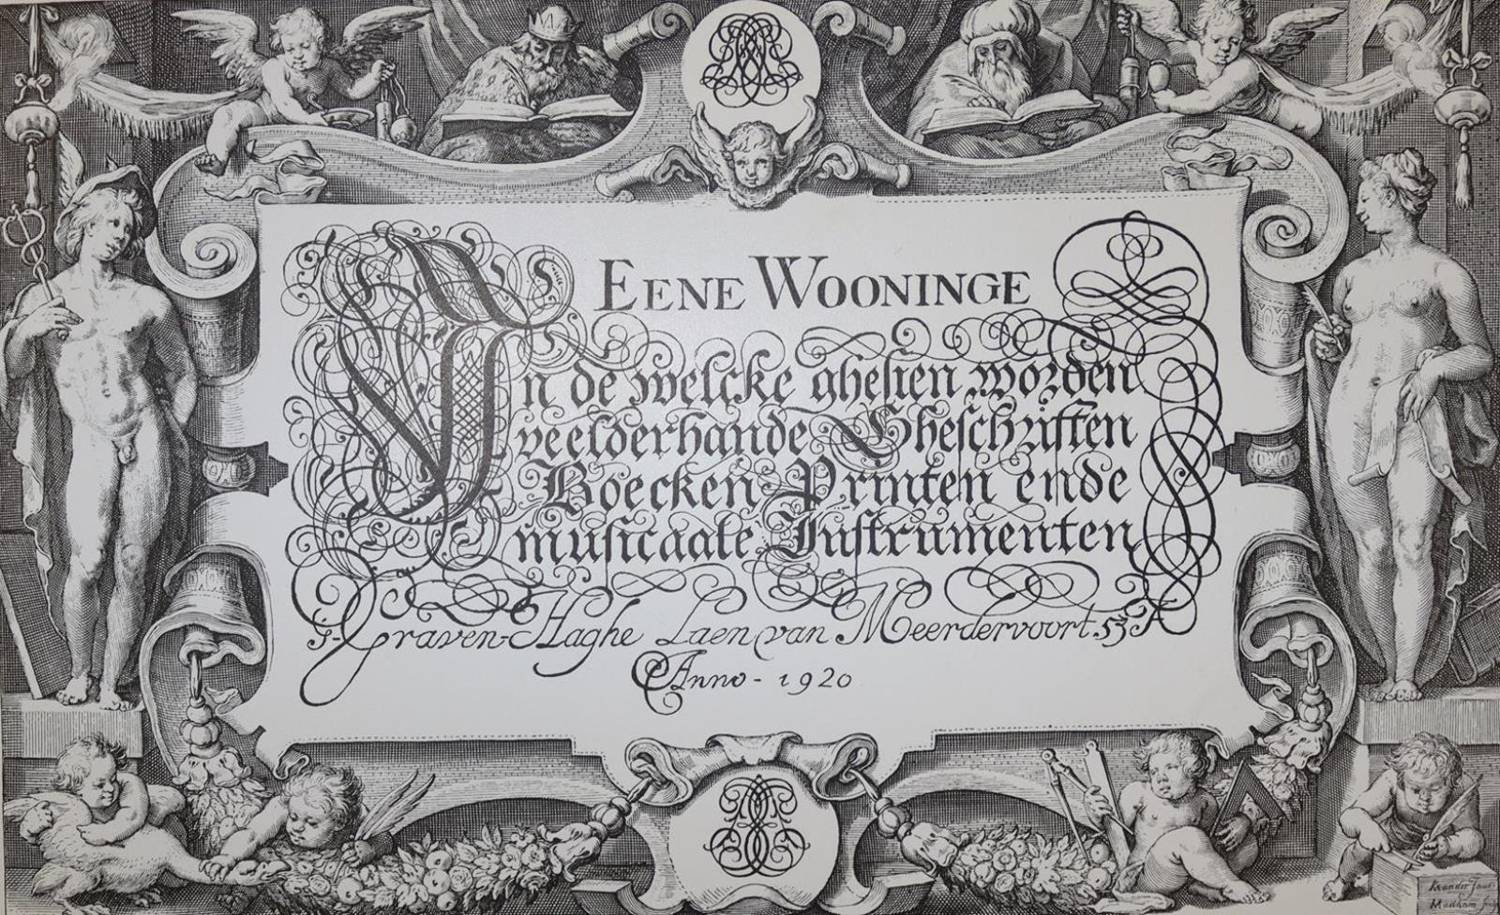 EENE WOONINGE
In de welcke ghesien worden
veelderhande Gheschriften
Boecken Printen ende
musicaale Instrumenten
s-Graven-Haghe Laen van Meerdervoort 53A
Anno - 1920